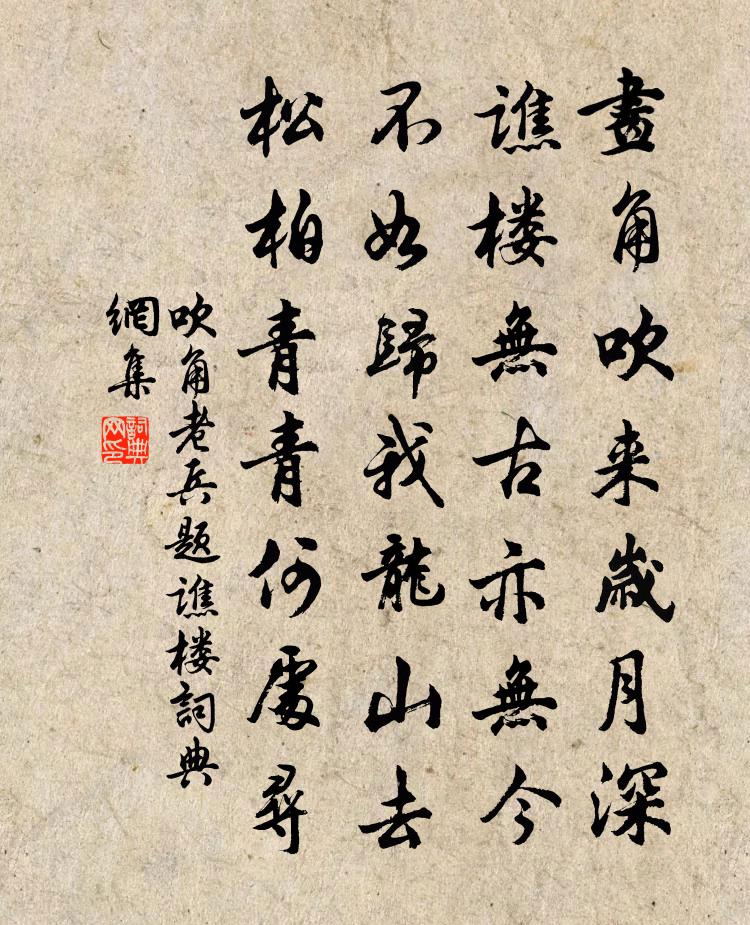 畫角吹来歲月深
譙楼無古亦無今
不如歸我龍山去
松柏青青何處尋
吹角老兵題譙楼詞典
網集
詞典网印